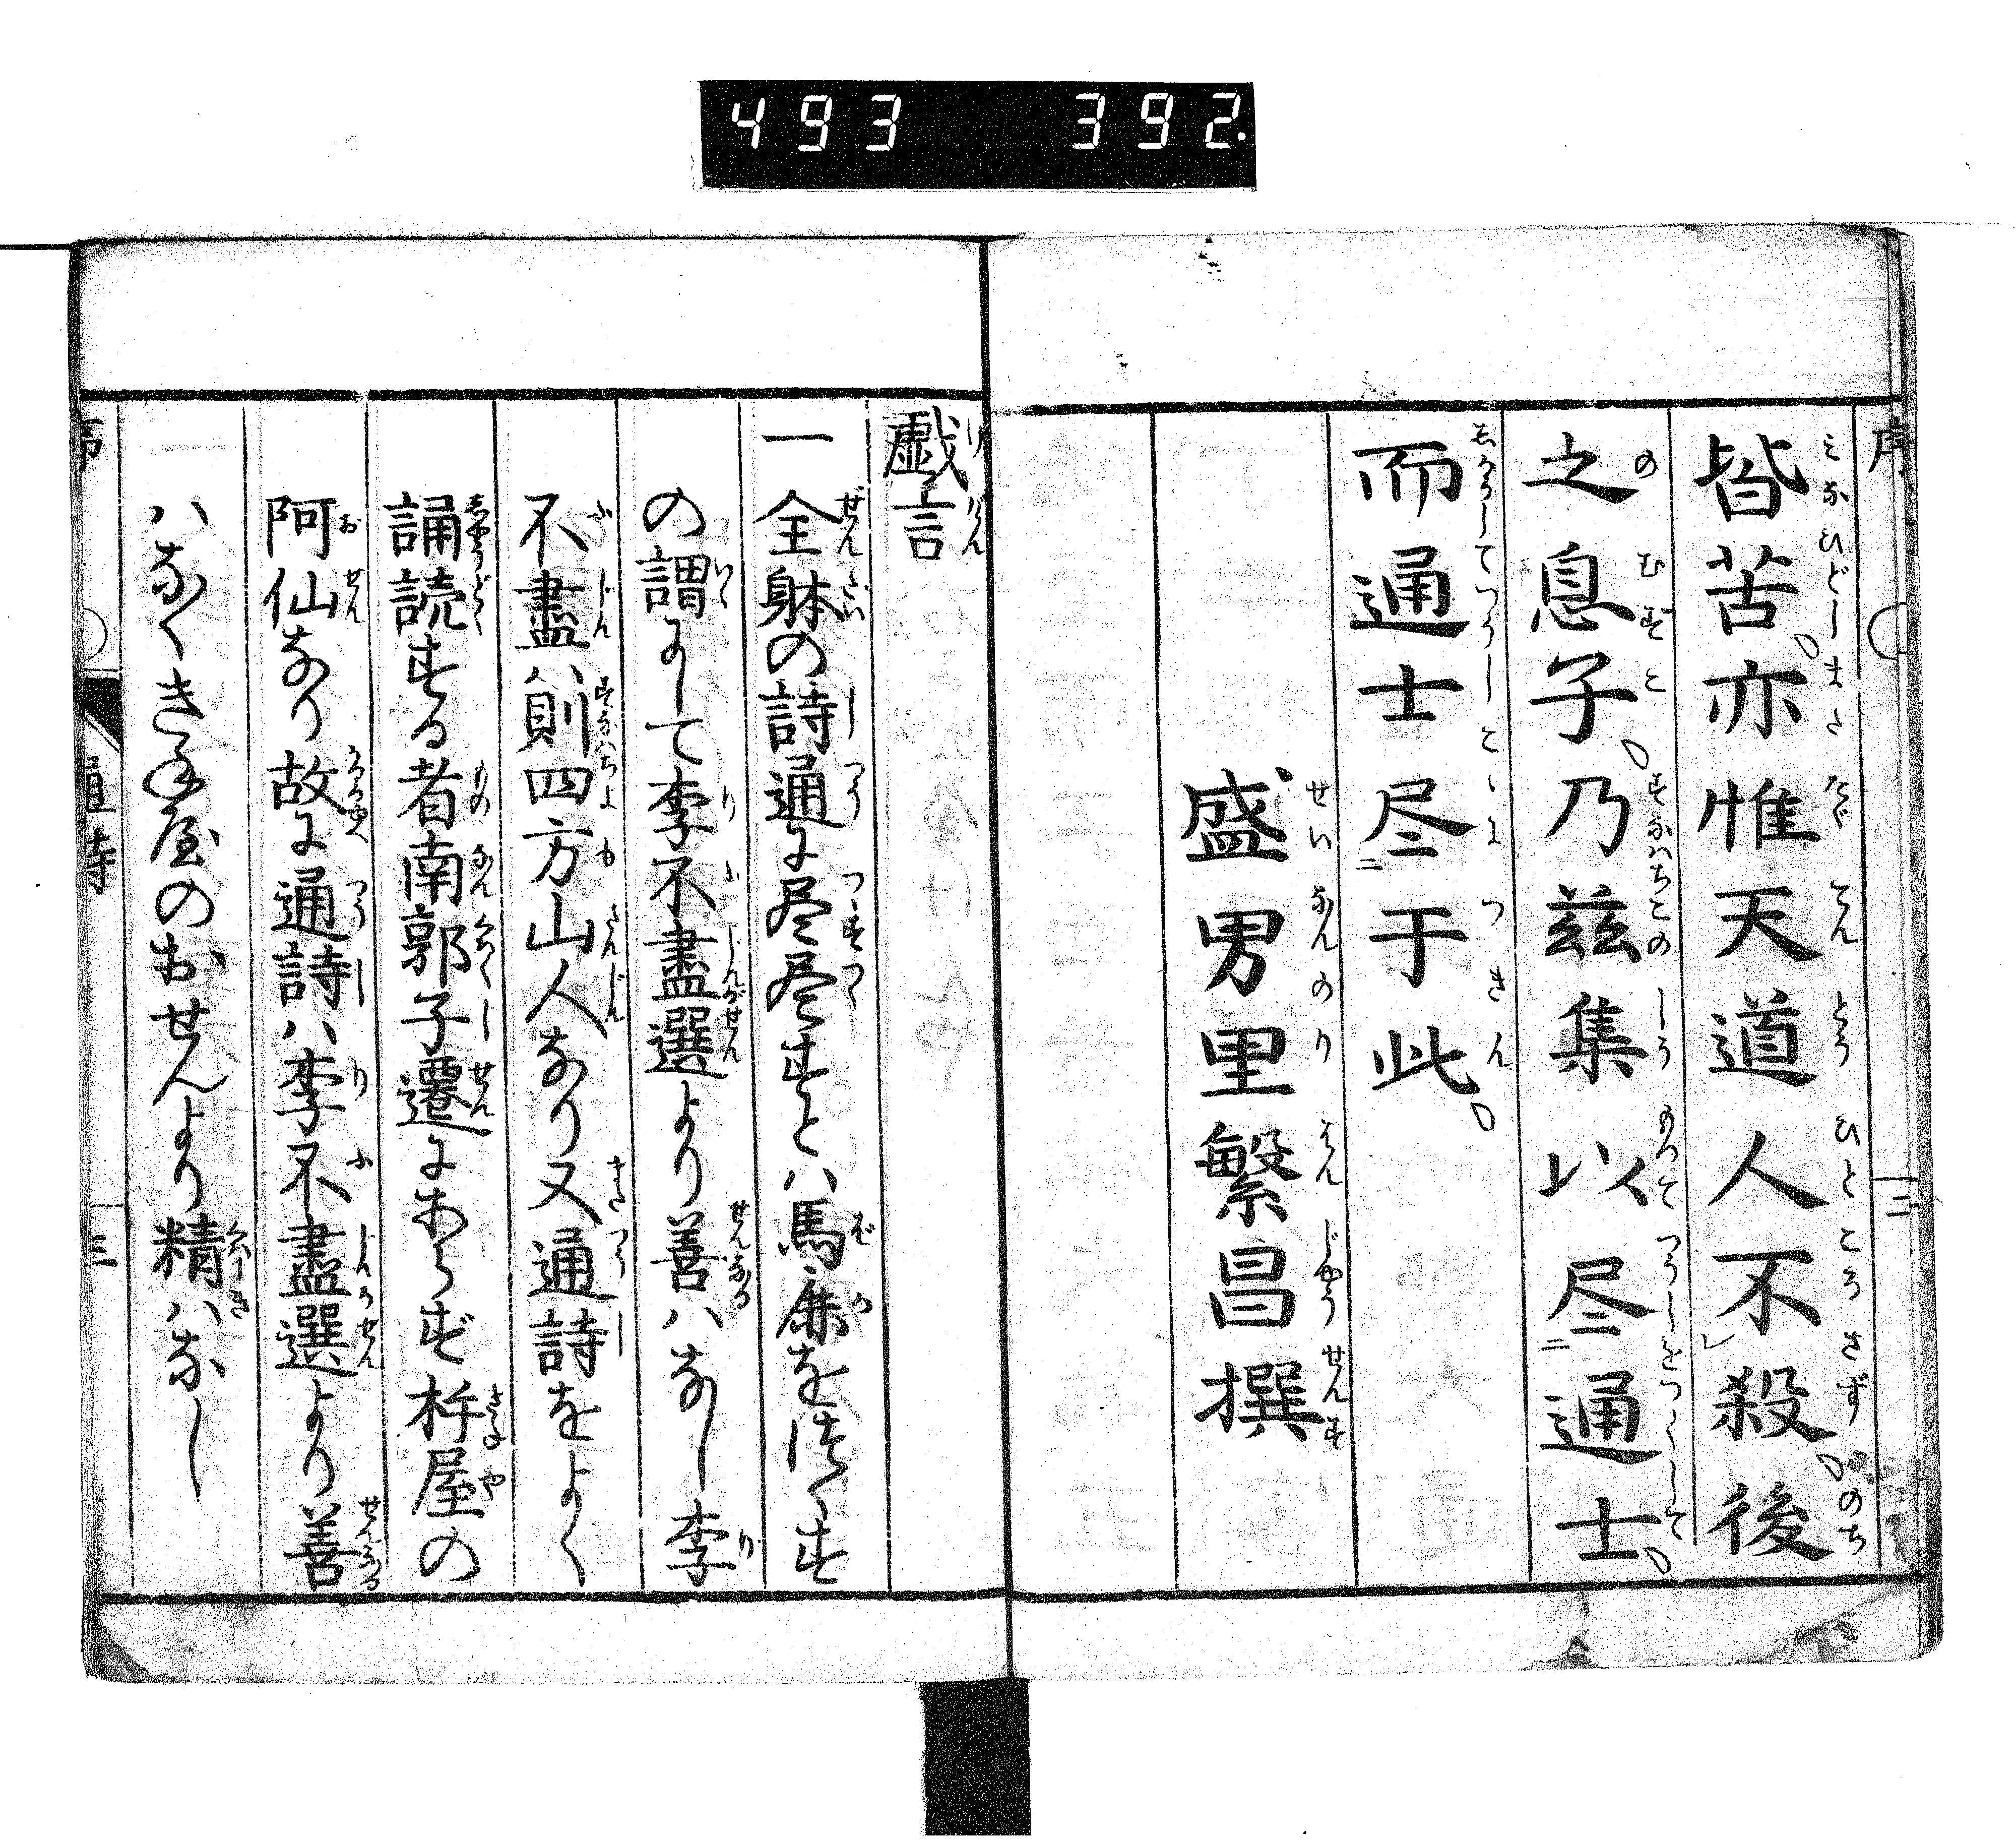 493 392.
序
皆苦亦惟天道人不殺後
之息子乃兹集以尽通士
而通士尽于此
盛男里繁昌撰
三
戯言
一全躰の詩通に尽尽すとハ馬鹿をつくす
の謂にして李不盡選より善ハなし李
不盡ハ則四方山人なり又通詩をよく
誦読する者南郭子遷にあらず杵屋の
阿仙なり故に通詩ハ李不盡選より善
ハなくきね屋のおせんより精ハなし
三